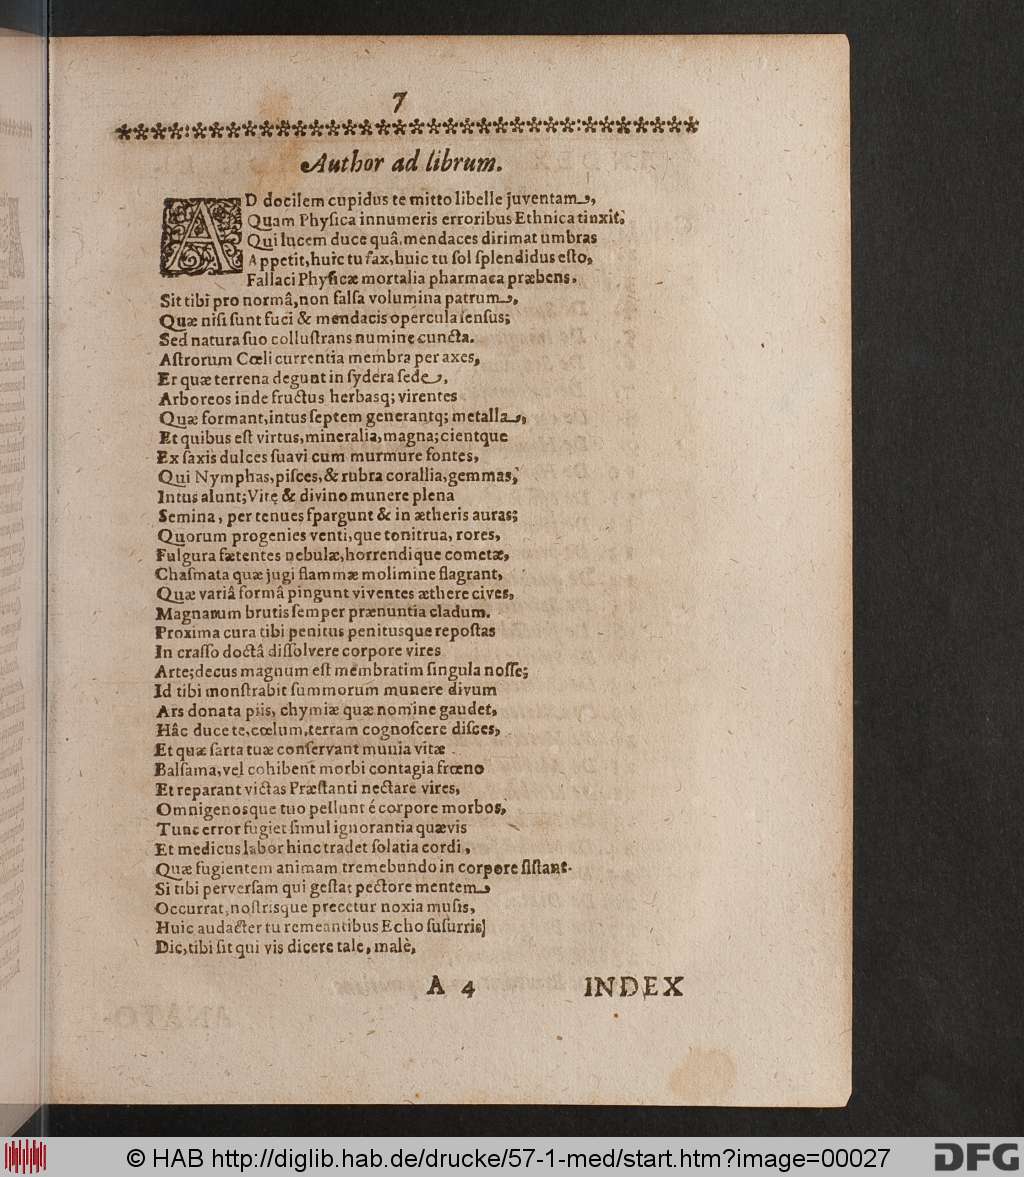 7
Author ad librum.
AD docilem cupidus te mitto libelle juventam,
Quam Phyſica innumeris erroribus Ethnica tinxit;
Qui lucem duce quâ, mendaces dirimat umbras
Appetit, huic tu fax, huic tu ſol ſplendidus eſto,
Fallaci Phyſicæ mortalia pharmaca præbens.
Sit tibi pro normâ, non falſa volumina patrum,
Quæ niſi ſunt fuci & mendacis opercula ſenſus;
Sed natura ſuo colluſtrans numine cuncta.
Aſtrorum Cœli currentia membra per axes,
Er quæ terrena degunt in ſydera ſede,
Arboreos inde fructus herbasq; virentes
Quæ formant, intus ſeptem generantq; metalla,
Et quibus eſt virtus, mineralia, magna; cientque
Ex ſaxis dulces ſuavi cum murmure fontes,
Qui Nymphas, piſces, & rubra corallia, gemmas,
Intus alunt; Vitę & divino munere plena
Semina, per tenues ſpargunt & in ætheris auras;
Quorum progenies venti, que tonitrua, rores,
Fulgura fætentes nebulæ, horrendique cometæ,
Chaſmata quæ jugi flammæ molimine flagrant,
Quæ variâ formâ pingunt viventes æthere cives,
Magnarum brutis ſemper prænuntia cladum.
Proxima cura tibi penitus penitusque repoſtas
In craſſo doctâ diſſolvere corpore vires
Arte; decus magnum eſt membratim ſingula noſſe;
Id tibi monſtrabit ſummorum munere divum
Ars donata piis, chymiæ quæ nomine gaudet,
Hâc duce te, cœlum, terram cognoſcere diſces,
Et quæ ſarta tuæ conſervant munia vitæ
Balſama, vel cohibent morbi contagia frœno
Et reparant victas Præſtanti nectare vires,
Omnigenosque tuo pellunt é corpore morbos,
Tunc error fugiet ſimul ignorantia quævis
Et medicus labor hinc tradet ſolatia cordi,
Quæ fugientem animam tremebundo in corpore ſiſtant.
Si tibi perverſam qui geſtat pectore mentem,
Occurrat, noſtrisque precetur noxia muſis,
Huic audacter tu remeantibus Echo ſuſurris
Dic, tibi ſit qui vis dicere tale, malè,
A 4 INDEX
© HAB http://diglib.hab.de/drucke/57-1-med/start.htm?image=00027
DFG